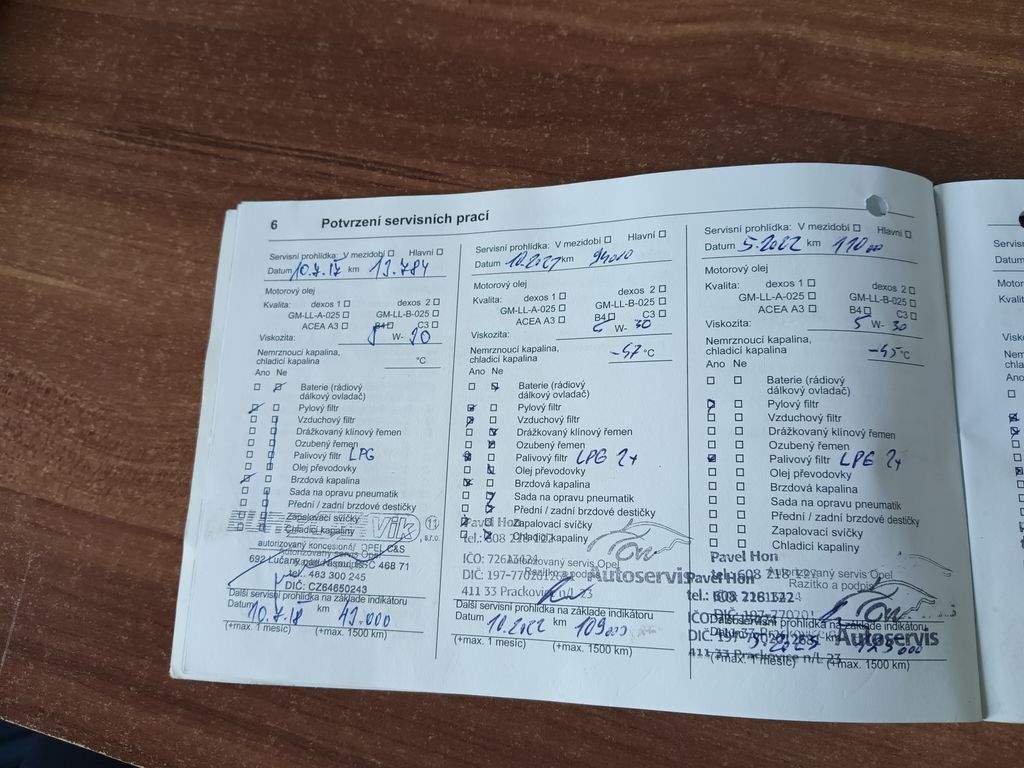 6 Potvrzení servisních prací
Servisní prohlídka: V mezidobí Hlavní
Datum 10.7.17 km 13.784
Motorový olej
Kvalita: dexos 1 dexos 2
GM-LL-A-025 GM-LL-B-025
ACEA A3 B4 C3
Viskozita: W-
Nemrznoucí kapalina,
chladicí kapalina °C
Ano Ne
Baterie (rádiový
dálkový ovladač)
Pylový filtr
Vzduchový filtr
Drážkovaný klínový řemen
Ozubený řemen
Palivový filtr LPG
Olej převodovky
Brzdová kapalina
Sada na opravu pneumatik
Přední / zadní brzdové destičky
Zapalovací svíčky
Chladicí kapaliny
s.r.o.
autorizovaný koncesionář OPEL C&S
Autorizovaný servis Opel
468 71
tel.: 483 300 245
DIČ: CZ64650243
Další servisní prohlídka na základě indikátoru
Datum 10.7.18 km 43.000
(+max. 1 měsíc) (+max. 1500 km)
Servisní prohlídka: V mezidobí Hlavní
Datum 10.2021 km 94000
Motorový olej
Kvalita: dexos 1 dexos 2
GM-LL-A-025 GM-LL-B-025
ACEA A3 B4 C3
Viskozita: W- 30
Nemrznoucí kapalina,
chladicí kapalina -47 °C
Ano Ne
Baterie (rádiový
dálkový ovladač)
Pylový filtr
Vzduchový filtr
Drážkovaný klínový řemen
Ozubený řemen
Palivový filtr LPG 2x
Olej převodovky
Brzdová kapalina
Sada na opravu pneumatik
Přední / zadní brzdové destičky
Pavel Hon Zapalovací svíčky
Chladicí kapaliny
Autorizovaný servis Opel
Razítko a podpis
Autoservis
411 33 Prackovice n/L 23
Další servisní prohlídka na základě indikátoru
Datum 10.2022 km 109000
(+max. 1 měsíc) (+max. 1500 km)
Servisní prohlídka: V mezidobí Hlavní
Datum 5.2022 km 110000
Motorový olej
Kvalita: dexos 1 dexos 2
GM-LL-A-025 GM-LL-B-025
ACEA A3 B4 C3
Viskozita: 5 W- 30
Nemrznoucí kapalina,
chladicí kapalina -45 °C
Ano Ne
Baterie (rádiový
dálkový ovladač)
Pylový filtr
Vzduchový filtr
Drážkovaný klínový řemen
Ozubený řemen
Palivový filtr LPG 2x
Olej převodovky
Brzdová kapalina
Sada na opravu pneumatik
Přední / zadní brzdové destičky
Zapalovací svíčky
Chladicí kapaliny
Pavel Hon
Autorizovaný servis Opel
Razítko a podpis
Pavel Hon
Autoservis
411 33 Prackovice n/L 23
(+max. 1 měsíc) (+max. 1500 km)